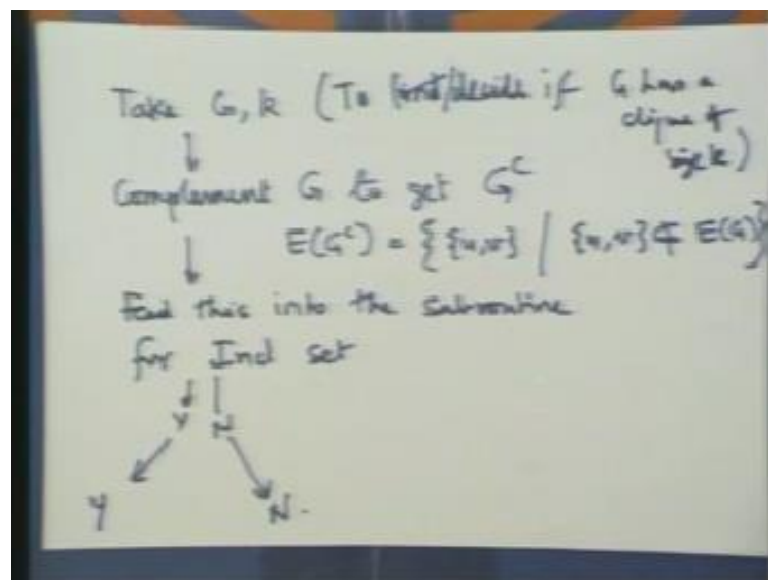 Take G, k (To find/decide if G has a
clique of
size k)
↓
Complement G to get G^c
E(G^c) = { {u,v} | {u,v} ∉ E(G) }
↓
Feed this into the subroutine
for Ind set
Y N
Y N.